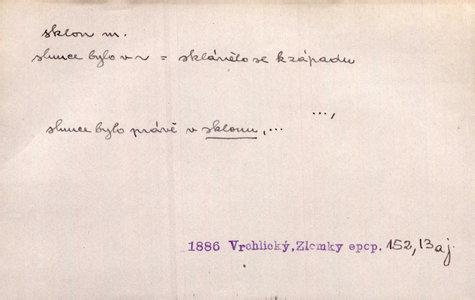 sklon m.
slunce bylo v ~ = sklánělo se k západu
...,
slunce bylo právě v sklonu,...
1886 Vrchlický,Zlomky epop. 152,13 aj.